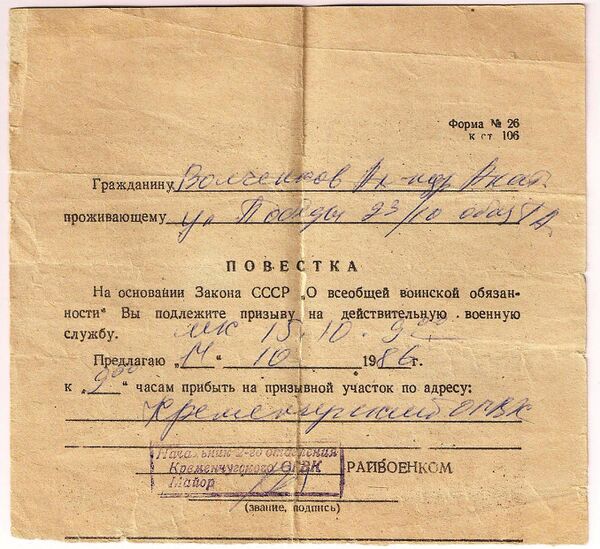 Форма № 26
к ст 106
Гражданину Волченков Ал-ндр Анат.
проживающему ул Победы 23/10
ПОВЕСТКА
На основании Закона СССР „О всеобщей воинской обязан-
ности" Вы подлежите призыву на действительную военную
службу. 15.10. 9⁰⁰
Предлагаю „14" 10 1986 г.
к „9⁰⁰" часам прибыть на призывной участок по адресу:
Кременчугский ОГВК
Начальник 2-го отделения
Кременчугского ОГВК
Майор
РАЙВОЕНКОМ
(звание, подпись)